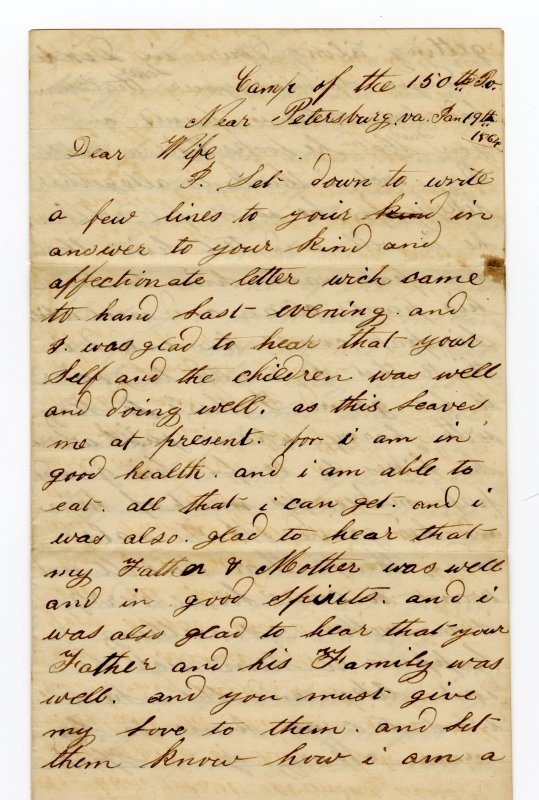 Camp of the 150th Po.
Near Petersburg va. Jan 19th
1864
Dear Wife
I. Set down to write
a few lines to your kind in
answer to your kind and
affectionate letter wich came
to hand Last evening. and
I. was glad to hear that your
Self and the children was well
and doing well. as this Leaves
me at present. for i am in
good health. and i am able to
eat. all that i can get. and i
was also. glad to hear that
my Father & Mother was well
and in good Spirits. and i
was also glad to hear that your
Father and his Family was
well. and you must give
my Love to them. and Let
them know how i am a